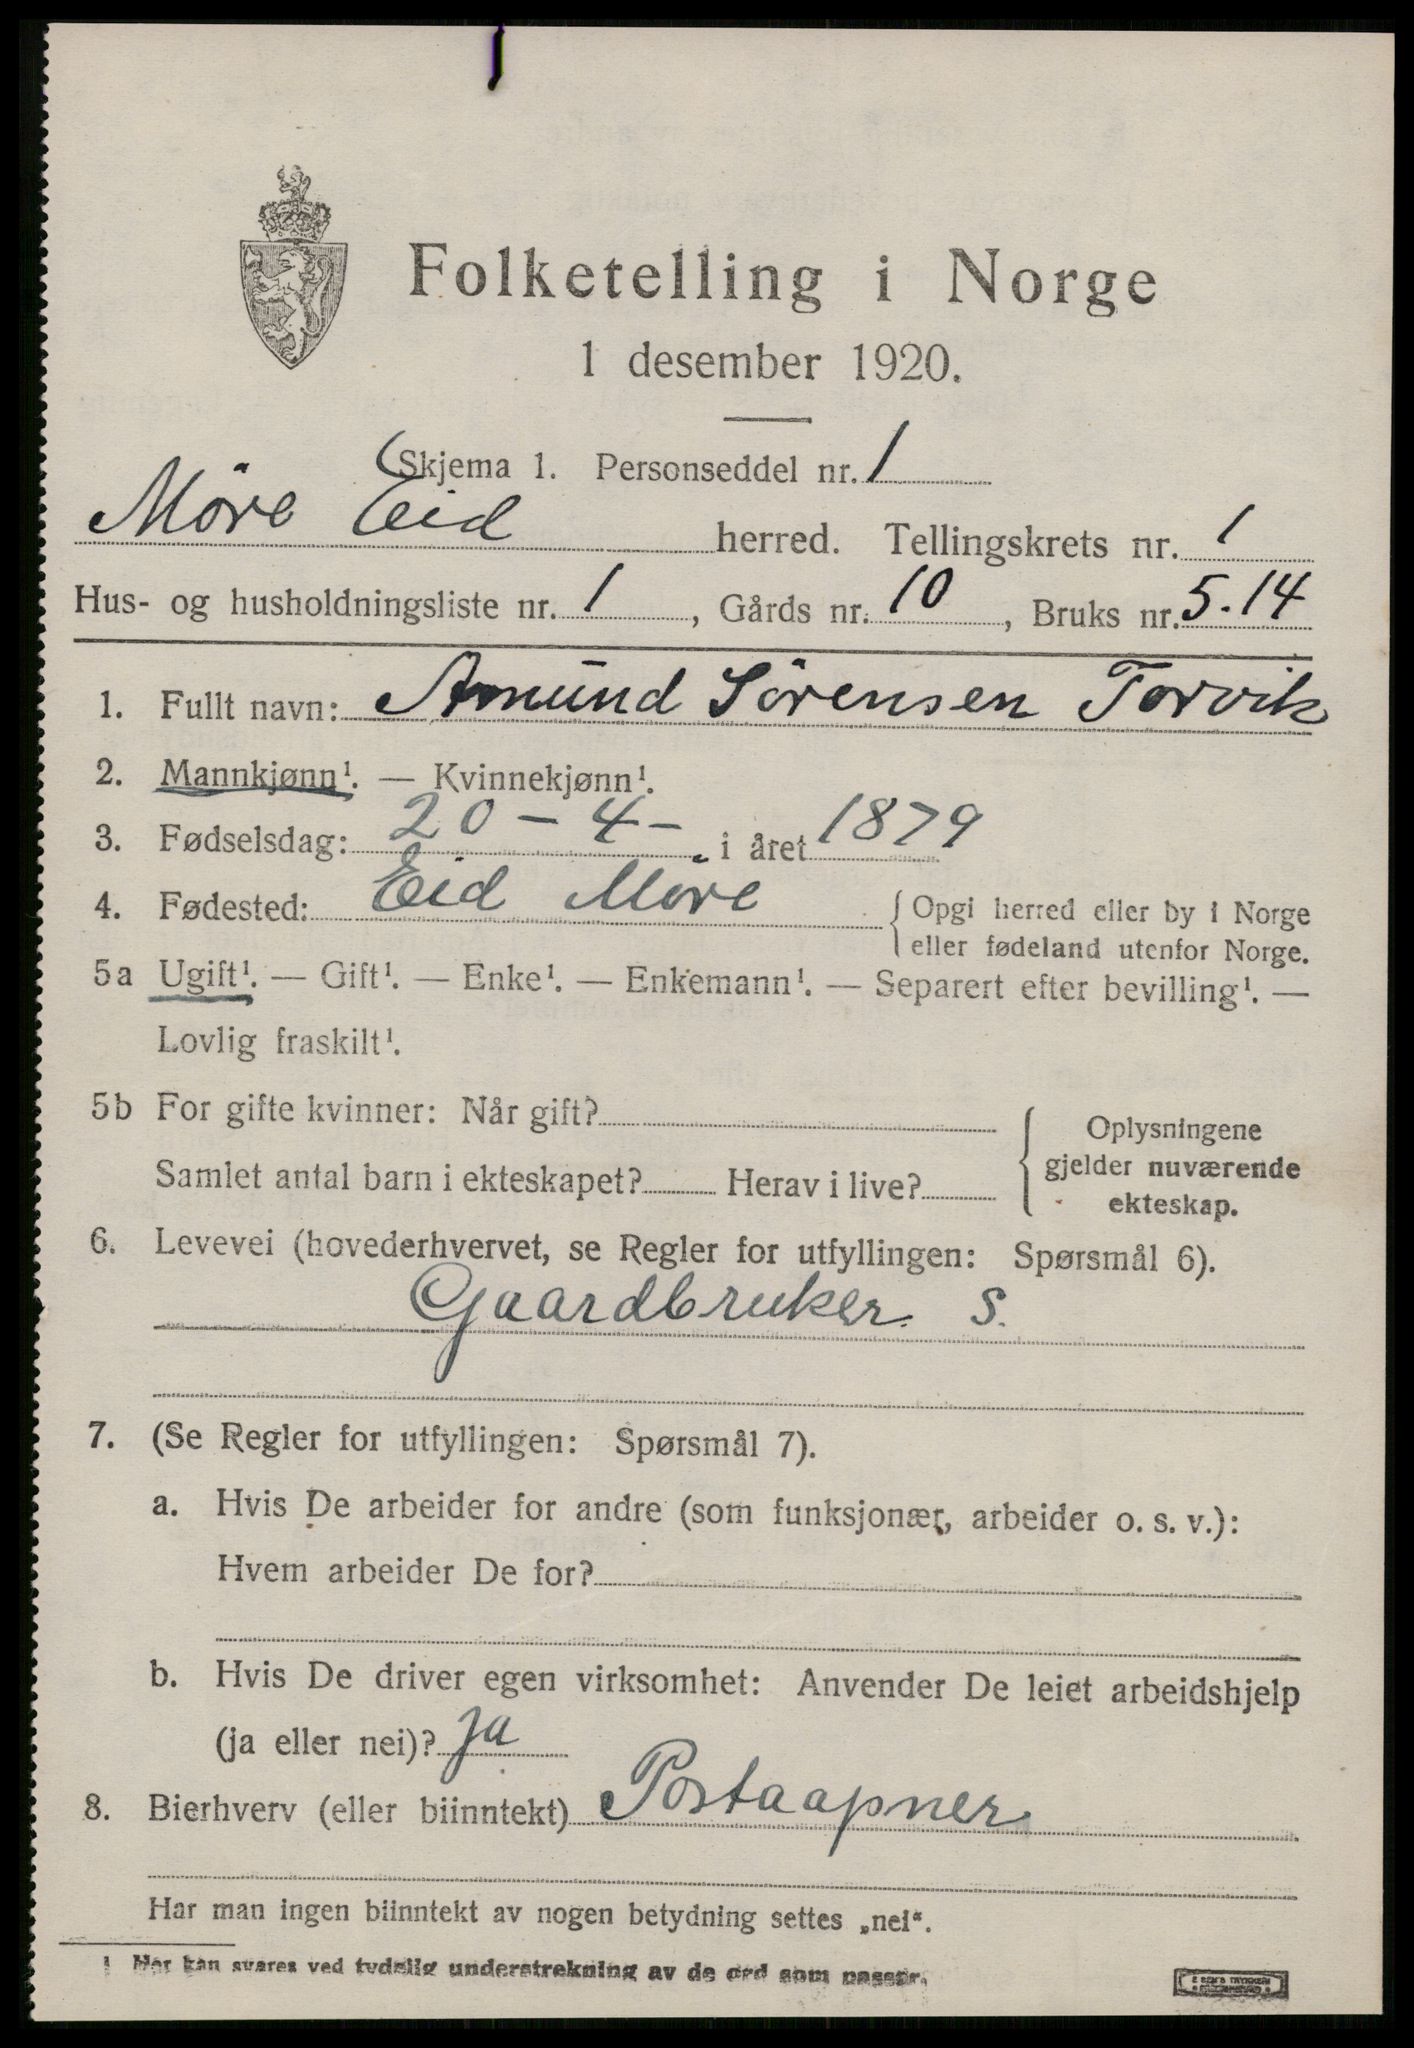 Folketelling i Norge
1 desember 1920.
(Skjema 1. Personseddel nr. 1
Möre Eid herred. Tellingskrets nr. 1
Hus- og husholdningsliste nr. 1, Gårds nr. 10, Bruks nr. 5.14
1. Fullt navn: Amund Sörensen Torvik
2. Mannkjønn¹. — Kvinnekjønn¹.
3. Fødselsdag: 20 - 4 - i året 1879
4. Fødested: Eid Möre
Opgi herred eller by i Norge
eller fødeland utenfor Norge.
5a Ugift¹. — Gift¹. — Enke¹. — Enkemann¹. — Separert efter bevilling¹. —
Lovlig fraskilt¹.
5b For gifte kvinner: Når gift?
Samlet antal barn i ekteskapet? Herav i live?
Oplysningene
gjelder nuværende
ekteskap.
6. Levevei (hovederhvervet, se Regler for utfyllingen: Spørsmål 6).
Gaardbruker s.
7. (Se Regler for utfyllingen: Spørsmål 7).
a. Hvis De arbeider for andre (som funksjonær, arbeider o. s. v.):
Hvem arbeider De for?
b. Hvis De driver egen virksomhet: Anvender De leiet arbeidshjelp
(ja eller nei)? ja
8. Bierhverv (eller biinntekt) Postaapner
Har man ingen biinntekt av nogen betydning settes „nei“.
1 Her kan svares ved tydelig understrekning av de ord som passer.